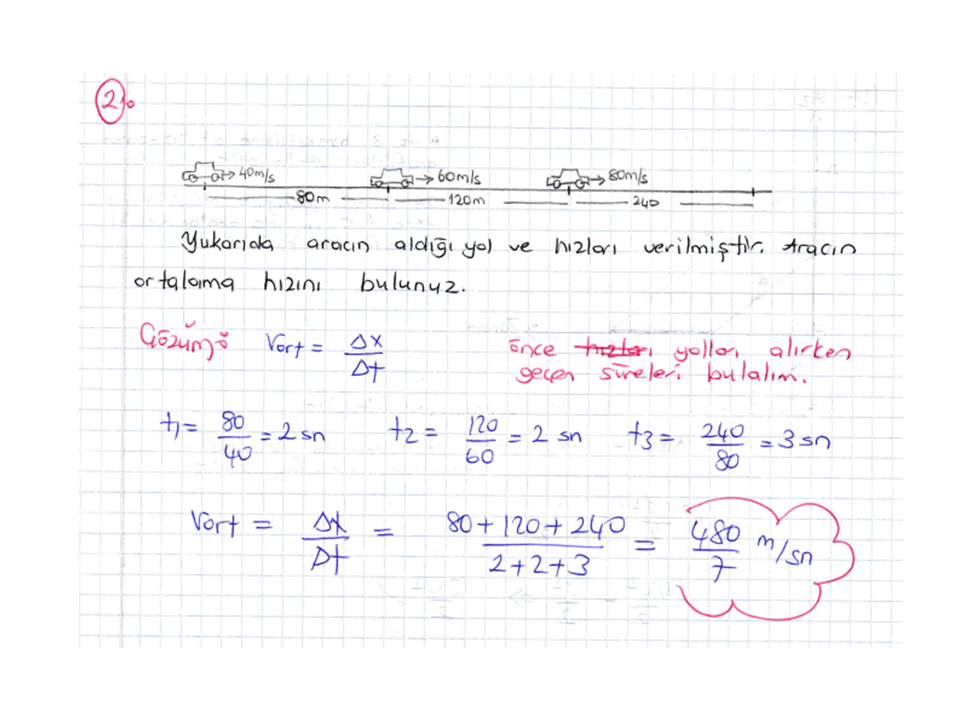 2)
40m/s 60m/s 80m/s
80m 120m 240
Yukarıda aracın aldığı yol ve hızları verilmiştir. Aracın
ortalama hızını bulunuz.
Çözüm: Vort = Δx / Δt
önce hızları yolları alırken
geçen süreleri bulalım.
t1 = 80/40 = 2 sn t2 = 120/60 = 2 sn t3 = 240/80 = 3 sn
Vort = Δx/Δt = 80+120+240 / 2+2+3 = 480/7 m/sn